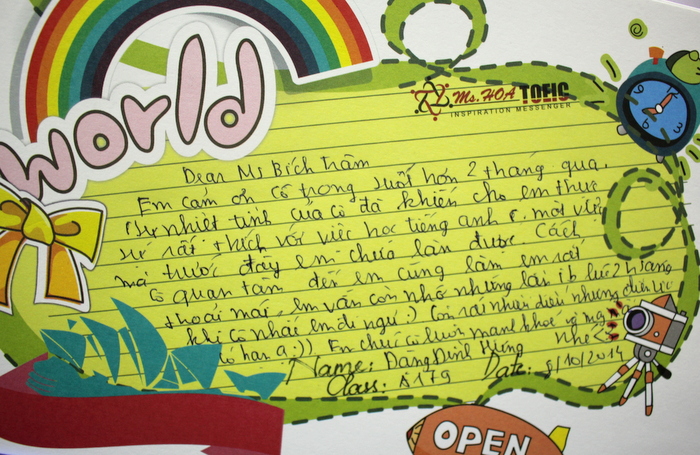 World
Ms. HOA TOEIC
INSPIRATION MESSENGER
Dear Ms Bích Trâm
Em cảm ơn cô trong suốt hơn 2 tháng qua.
Sự nhiệt tình của cô đã khiến cho em thực
sự rất thích với việc học tiếng anh, một việc
mà trước đây em chưa làm được. Cách
cô quan tâm đến em cũng làm em rất
thoải mái, em vẫn còn nhớ những lần ib lúc 2h sáng
khi cô nhắc em đi ngủ :) Còn rất nhiều điều nhưng
cô han a :)) Em chúc cô luôn mạnh khoẻ nhé <3
Name: Đặng Đình Hưng
Class: A179 Date: 8/10/2014
OPEN